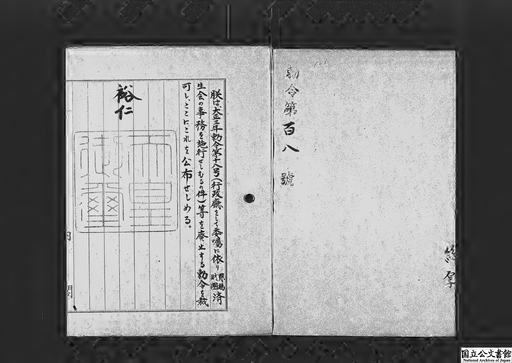 勅令第百八號
朕は大正三年勅令第十八号(行政廳をして委嘱に依り恩賜財團済
生会の事務を施行せしむるの件)等を廃止する勅令を裁
可し、ここにこれを公布せしめる。
裕仁
天皇御璽
月
国立公文書館
National Archives of Japan